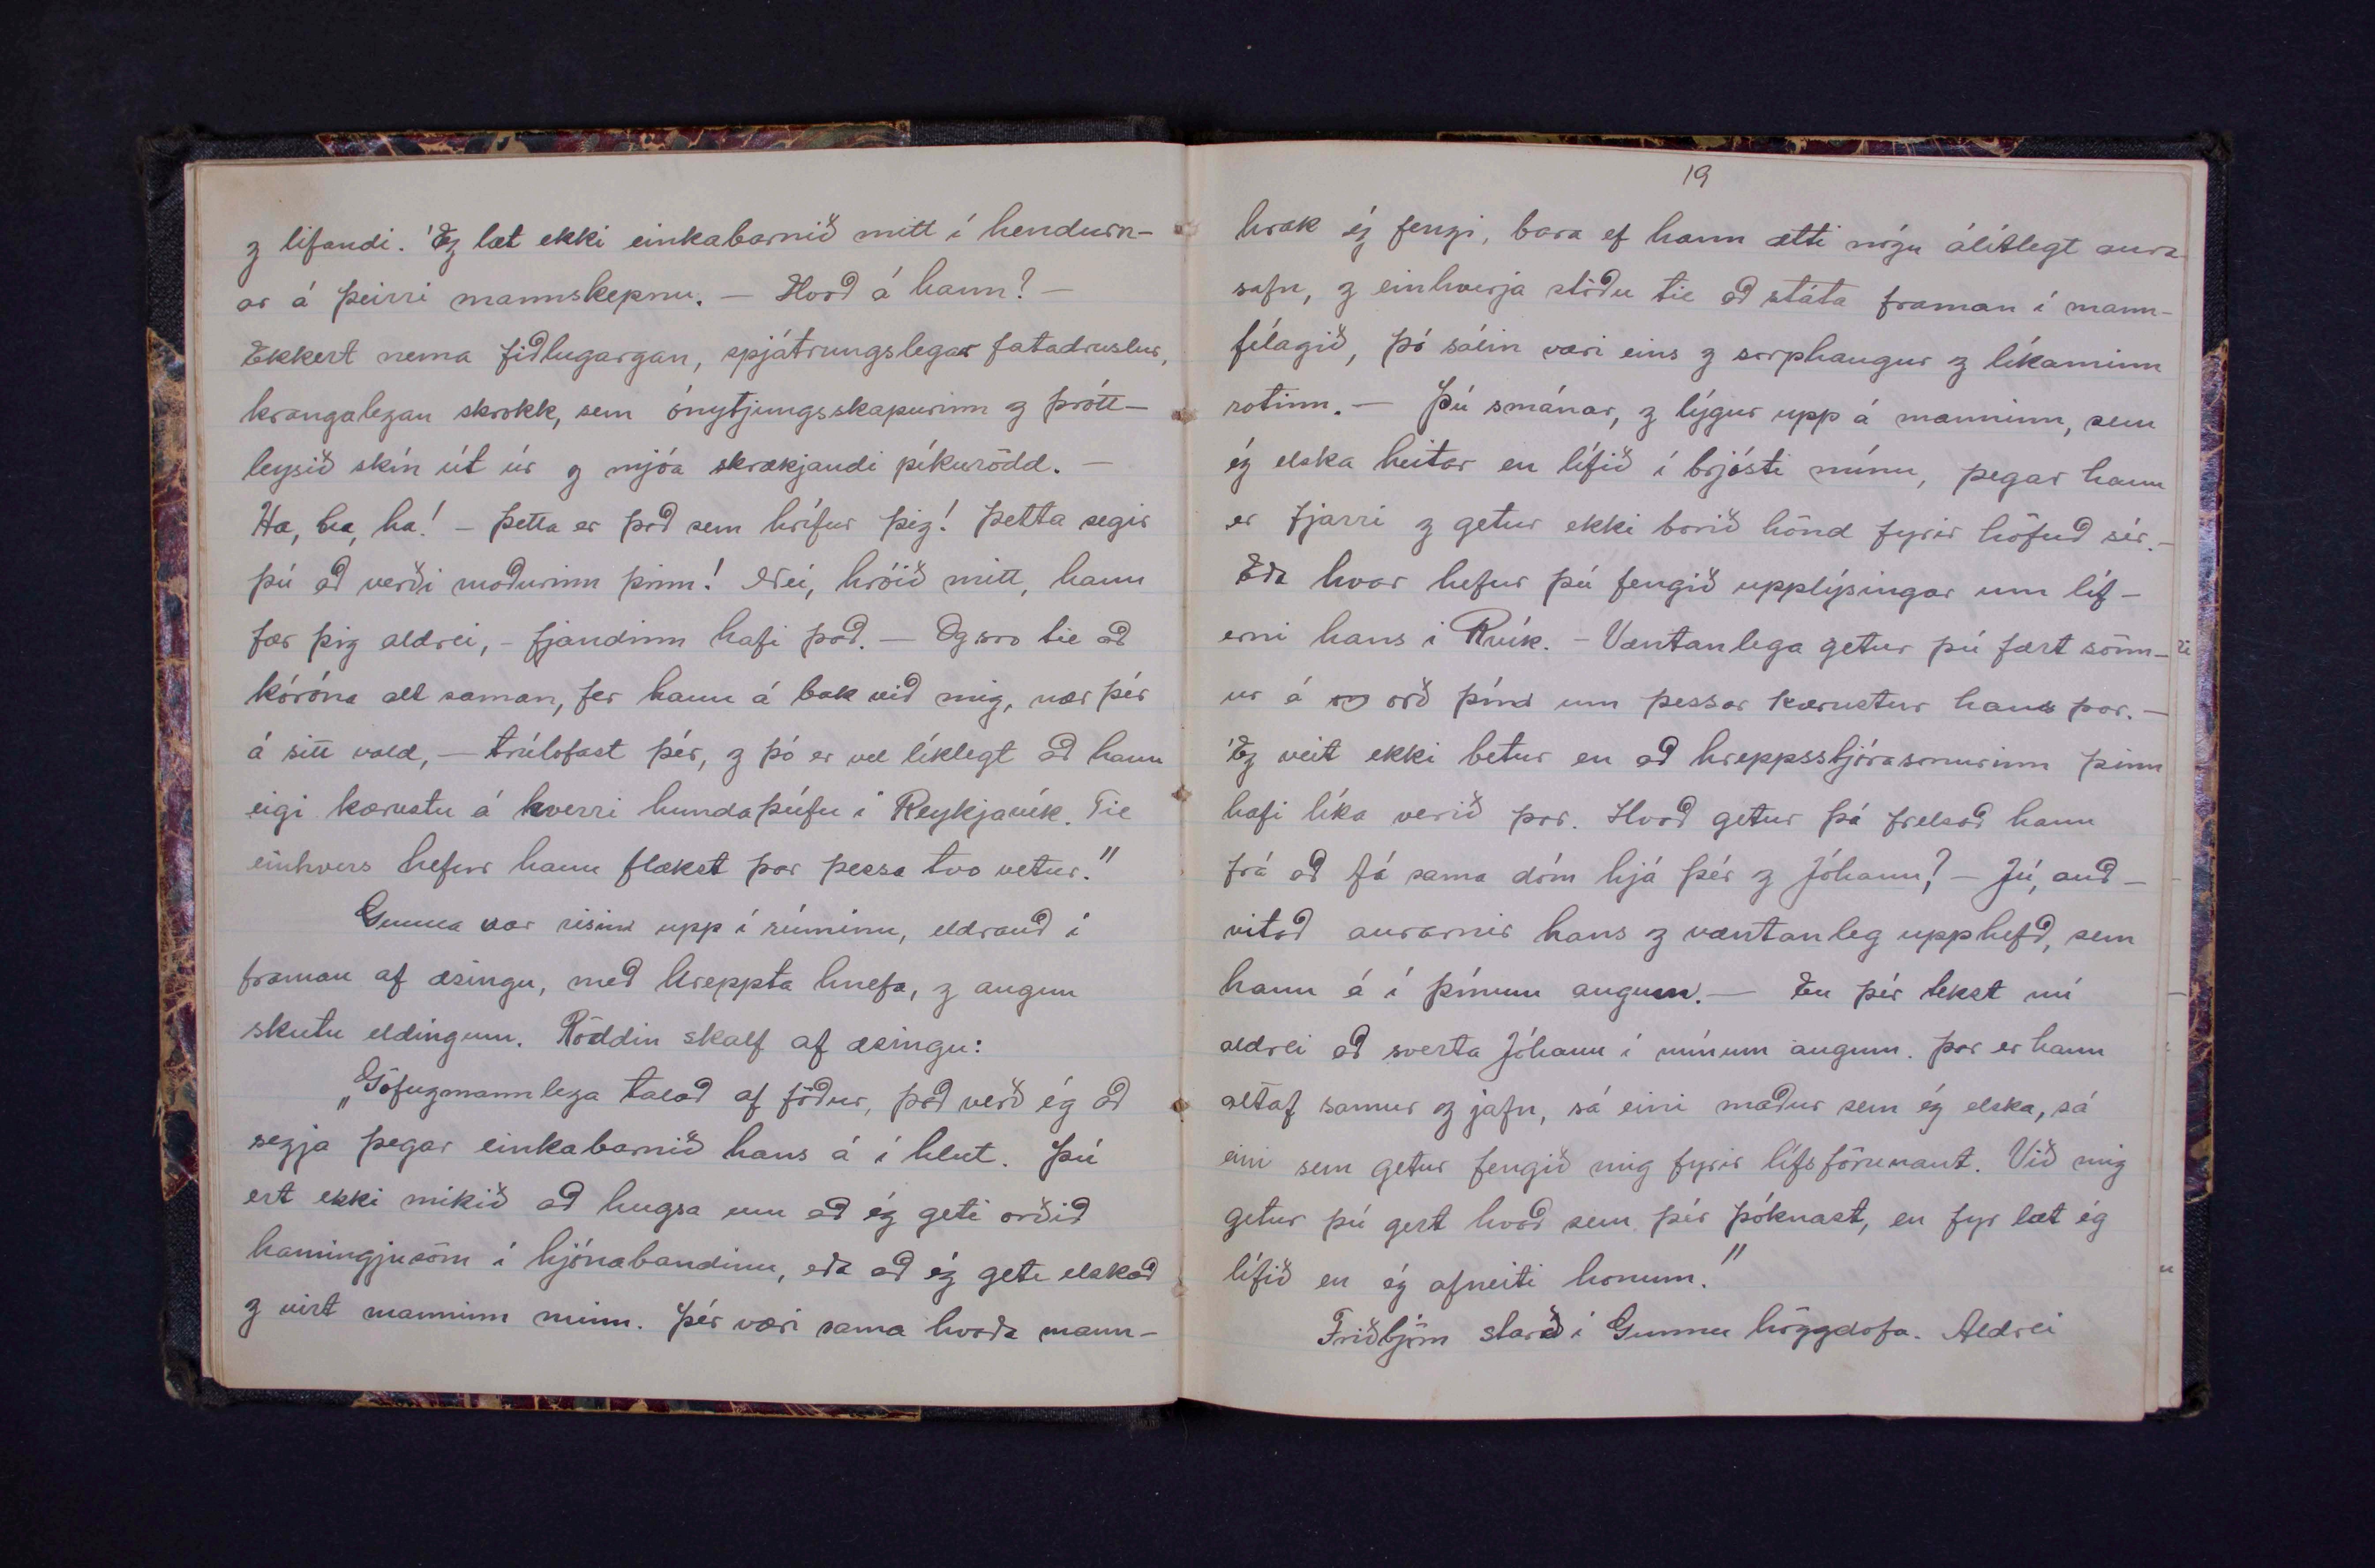 g lifandi. Ég læt ekki einkabarnið mitt í hendurn-
ar á þeirri mannskepnu. — Hvað á hann? —
Ekkert nema fiðlugargan, spjátrungslegar fatadruslur,
krangalegan skrokk, sem ónytjungsskapurinn g þrótt-
leysið skín út úr g mjóa skrækjandi píkurödd. —
Ha, ha, ha! - Þetta er það sem hrífur þig! Þetta segir
þú að verði maðurinn þinn! Nei, hróið mitt, hann
fær þig aldrei, - fjandinn hafi það. — Og svo til að
kóróna allt saman, fer hann á bak við mig, nær þér
á sitt vald, — trúlofast þér, g þó er vel líklegt að hann
eigi kærustu á hverri hundaþúfu í Reykjavík. Til
einhvers hefur hann flækst þar þessa tvo vetur."
Gunna var risin upp í rúminu, eldrauð í
framan af æsingu, með kreppta hnefa, g augun
skutu eldingum. Röddin skalf af æsingu:
„Göfugmannlega talað af föður, það verð ég að
segja þegar einkabarnið hans á í hlut. Þú
ert ekki mikið að hugsa um að ég geti orðið
hamingjusöm í hjónabandinu, eða að ég geti elskað
g virt manninn minn. Þér væri sama hvaða mann-
19
hrak ég fengi, bara ef hann ætti nógu álitlegt aura-
safn, g einhverja stöðu til að státa framan í mann-
félagið, þó sálin væri eins g sorphaugur g líkaminn
rotinn. — Þú smánar, g lýgur upp á manninn, sem
ég elska heitar en lífið í brjósti mínu, þegar hann
er fjarri g getur ekki borið hönd fyrir höfuð sér. -
Eða hvar hefur þú fengið upplýsingar um líf-
erni hans í Rvík. - Væntanlega getur þú fært sönn-
ur á orð þín um þessar kærustur hans þar. —
Ég veit ekki betur en að hreppsstjórasonurinn þinn
hafi líka verið þar. Hvað getur þá frelsað hann
frá að fá sama dóm hjá þér g Jóhann? — Jú, auð-
vitað aurarnir hans g væntanleg upphefð, sem
hann á í þínum augum. — En þér tekst nú
aldrei að sverta Jóhann í mínum augum. Þar er hann
altaf samur og jafn, sá eini maður sem ég elska, sá
eini sem getur fengið mig fyrir lífsförunaut. Við mig
getur þú gert hvað sem þér þóknast, en fyr læt ég
lífið en ég afneiti honum."
Friðbjörn starði í Gunnu höggdofa. Aldrei